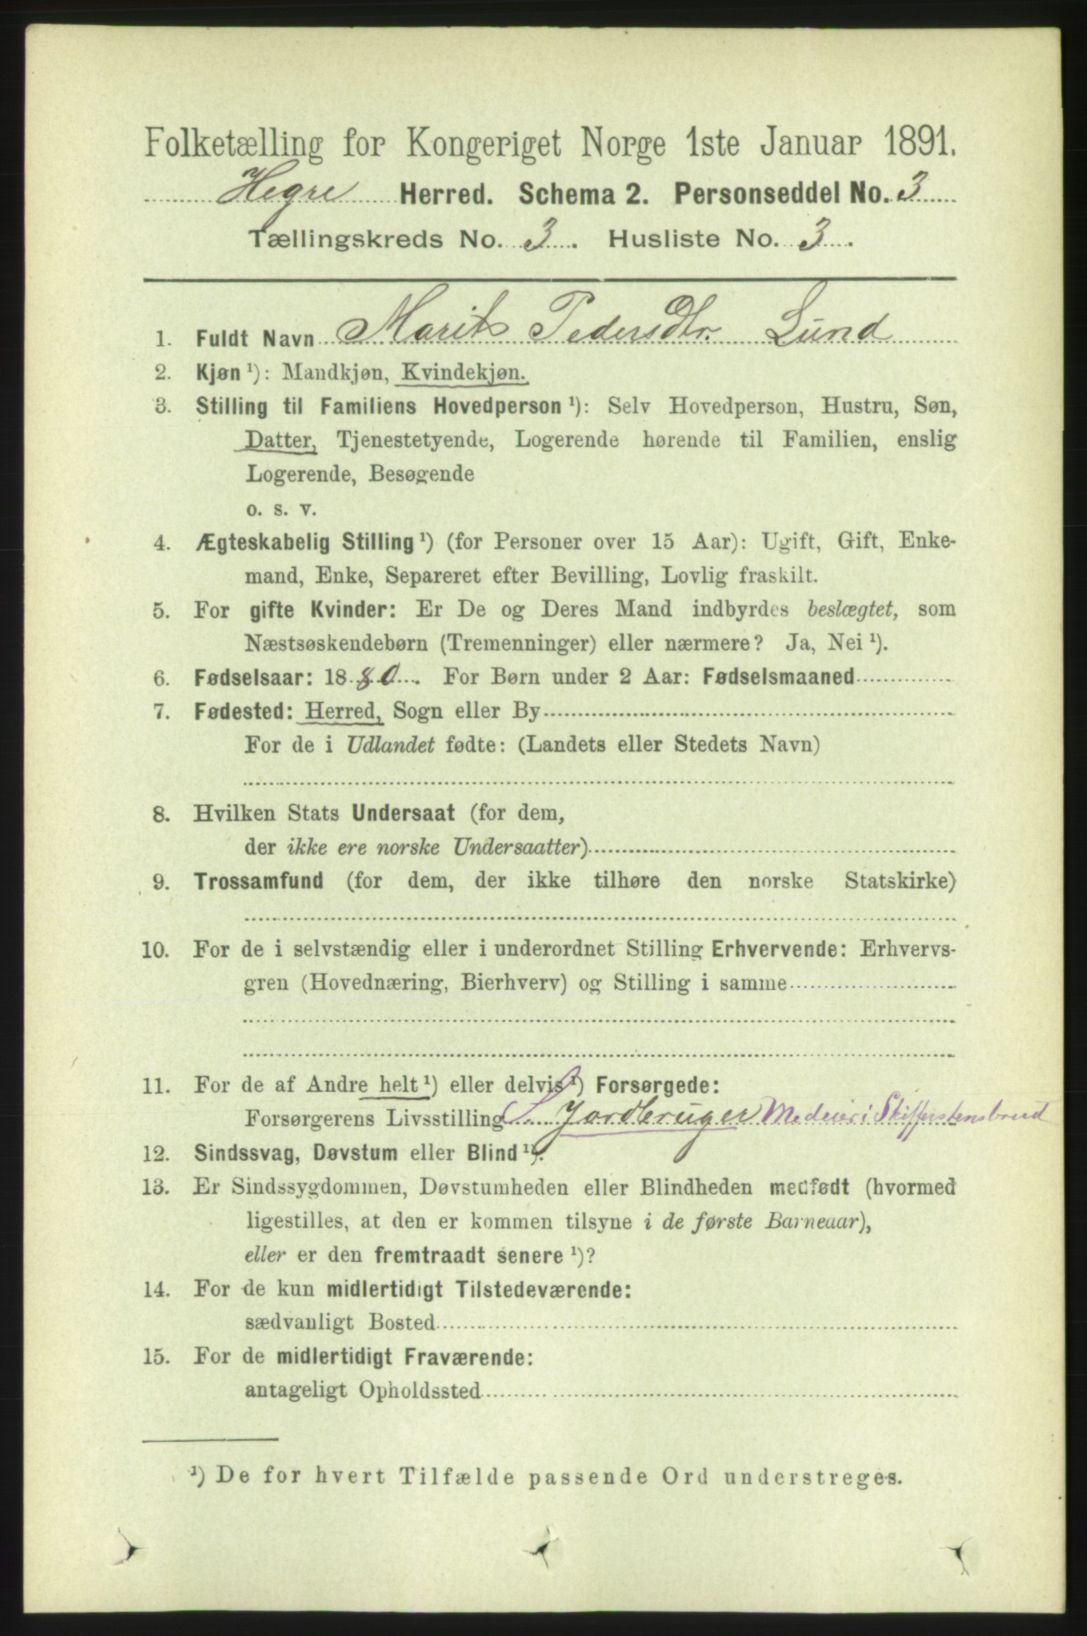 Folketælling for Kongeriget Norge 1ste Januar 1891.
Hegre Herred. Schema 2. Personseddel No. 3
Tællingskreds No. 3. Husliste No. 3.
1. Fuldt Navn Marit Pedersdtr. Lund
2. Kjøn ¹): Mandkjøn, Kvindekjøn.
3. Stilling til Familiens Hovedperson ¹): Selv Hovedperson, Hustru, Søn,
Datter, Tjenestetyende, Logerende hørende til Familien, enslig
Logerende, Besøgende
o. s. v.
4. Ægteskabelig Stilling ¹) (for Personer over 15 Aar): Ugift, Gift, Enke-
mand, Enke, Separeret efter Bevilling, Lovlig fraskilt.
5. For gifte Kvinder: Er De og Deres Mand indbyrdes beslægtet, som
Næstsøskendebørn (Tremenninger) eller nærmere? Ja, Nei ¹).
6. Fødselsaar: 1880. For Børn under 2 Aar: Fødselsmaaned
7. Fødested: Herred, Sogn eller By
For de i Udlandet fødte: (Landets eller Stedets Navn)
8. Hvilken Stats Undersaat (for dem,
der ikke ere norske Undersaatter)
9. Trossamfund (for dem, der ikke tilhøre den norske Statskirke)
10. For de i selvstændig eller i underordnet Stilling Erhvervende: Erhvervs-
gren (Hovednæring, Bierhverv) og Stilling i samme
11. For de af Andre helt ¹) eller delvis ¹) Forsørgede:
Forsørgerens Livsstilling S. Jordbruger Medeier i Skifferstensbrud
12. Sindssvag, Døvstum eller Blind ¹).
13. Er Sindssygdommen, Døvstumheden eller Blindheden medfødt (hvormed
ligestilles, at den er kommen tilsyne i de første Barneaar),
eller er den fremtraadt senere ¹)?
14. For de kun midlertidigt Tilstedeværende:
sædvanligt Bosted
15. For de midlertidigt Fraværende:
antageligt Opholdssted
¹) De for hvert Tilfælde passende Ord understreges.